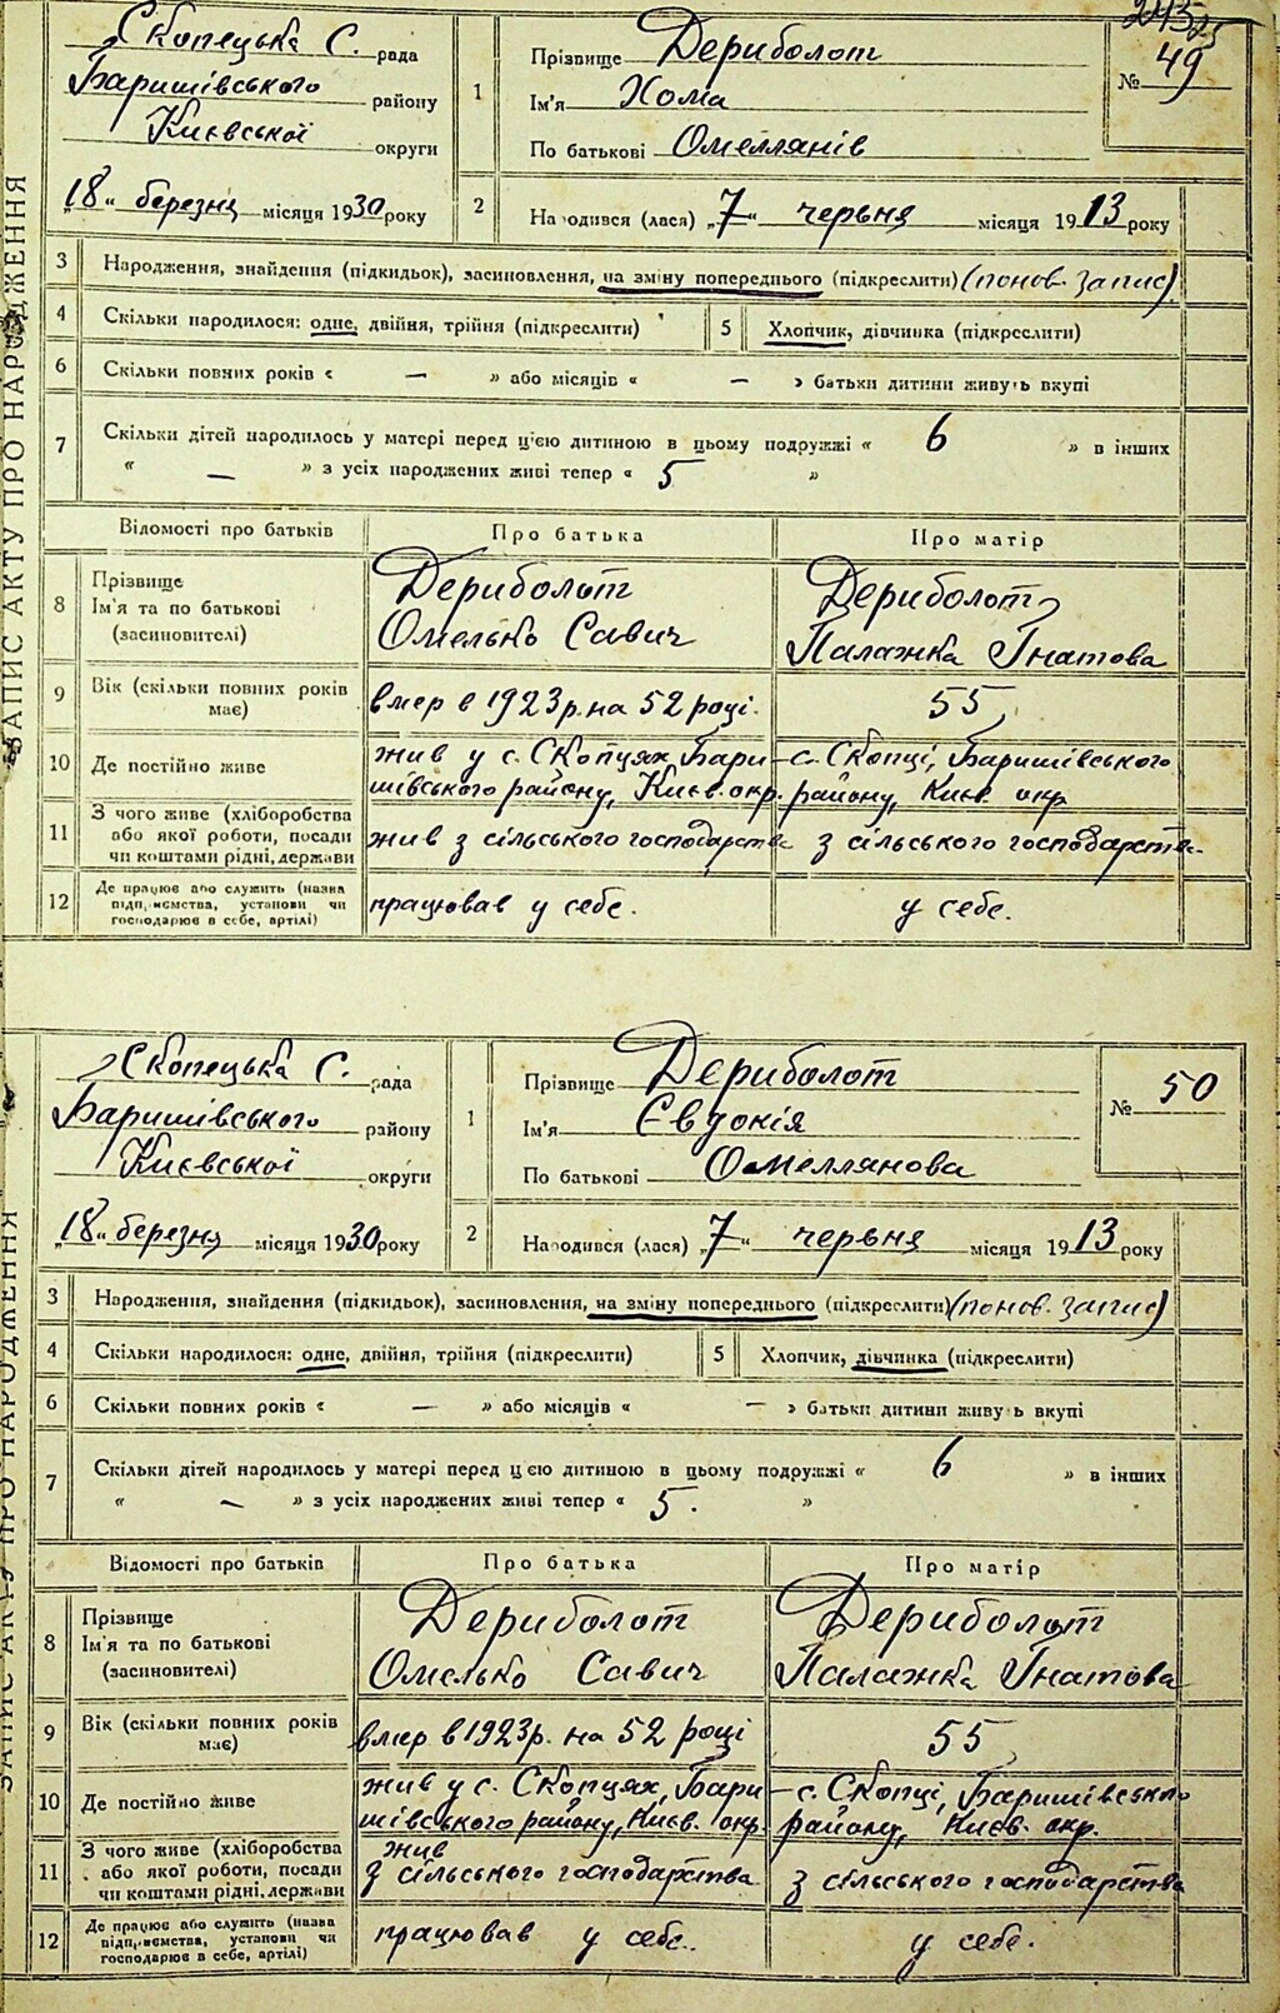 Скопецька С. рада
Баришівського району
Київської округи
„18" березня місяця 1930 року
1
Прізвище Дериболот
Ім'я Хома
По батькові Омеллянів
№ 49
2
Народився (лася) „7" червня місяця 1913 року
ЗАПИС АКТУ ПРО НАРОДЖЕННЯ
3 Народження, знайдення (підкидьок), засиновлення, на зміну попереднього (підкреслити) (понов. запис)
4 Скільки народилося: одне, двійня, трійня (підкреслити) 5 Хлопчик, дівчинка (підкреслити)
6 Скільки повних років « — » або місяців « — » батьки дитини живуть вкупі
7 Скільки дітей народилось у матері перед цією дитиною в цьому подружжі « 6 » в інших
« — » з усіх народжених живі тепер « 5 »
Відомості про батьків Про батька Про матір
8 Прізвище Ім'я та по батькові (засиновителі)
Дериболот Омелько Савич
Дериболот Палажка Гнатова
9 Вік (скільки повних років має)
вмер в 1923 р. на 52 році.
55
10 Де постійно живе
жив у с. Скопцях, Баришівського району, Києв. окр.
с. Скопці, Баришівського району, Києв. окр
11 З чого живе (хліборобства або якої роботи, посади чи коштами рідні, держави
жив з сільського господарства
з сільського господарства.
12 Де працює або служить (назва підприємства, установи чи господарює в себе, артілі)
працював у себе.
у себе.
Скопецька С. рада
Баришівського району
Києвської округи
„18" березня місяця 1930 року
1
Прізвище Дериболот
Ім'я Євдокія
По батькові Омеллянова
№ 50
2
Народився (лася) „7" червня місяця 1913 року
ЗАПИС АКТУ ПРО НАРОДЖЕННЯ
3 Народження, знайдення (підкидьок), засиновлення, на зміну попереднього (підкреслити) (понов. запис)
4 Скільки народилося: одне, двійня, трійня (підкреслити) 5 Хлопчик, дівчинка (підкреслити)
6 Скільки повних років « — » або місяців « — » батьки дитини живуть вкупі
7 Скільки дітей народилось у матері перед цією дитиною в цьому подружжі « 6 » в інших
« — » з усіх народжених живі тепер « 5. »
Відомості про батьків Про батька Про матір
8 Прізвище Ім'я та по батькові (засиновителі)
Дериболот Омелько Савич
Дериболот Палажка Гнатова
9 Вік (скільки повних років має)
вмер в 1923 р. на 52 році
55
10 Де постійно живе
жив у с. Скопцях, Баришівського району, Києв. окр.
с. Скопці, Баришівського району, Києв. окр.
11 З чого живе (хліборобства або якої роботи, посади чи коштами рідні, держави
жив з сільського господарства
з сільського господарства
12 Де працює або служить (назва підприємства, установи чи господарює в себе, артілі)
працював у себе.
у себе.